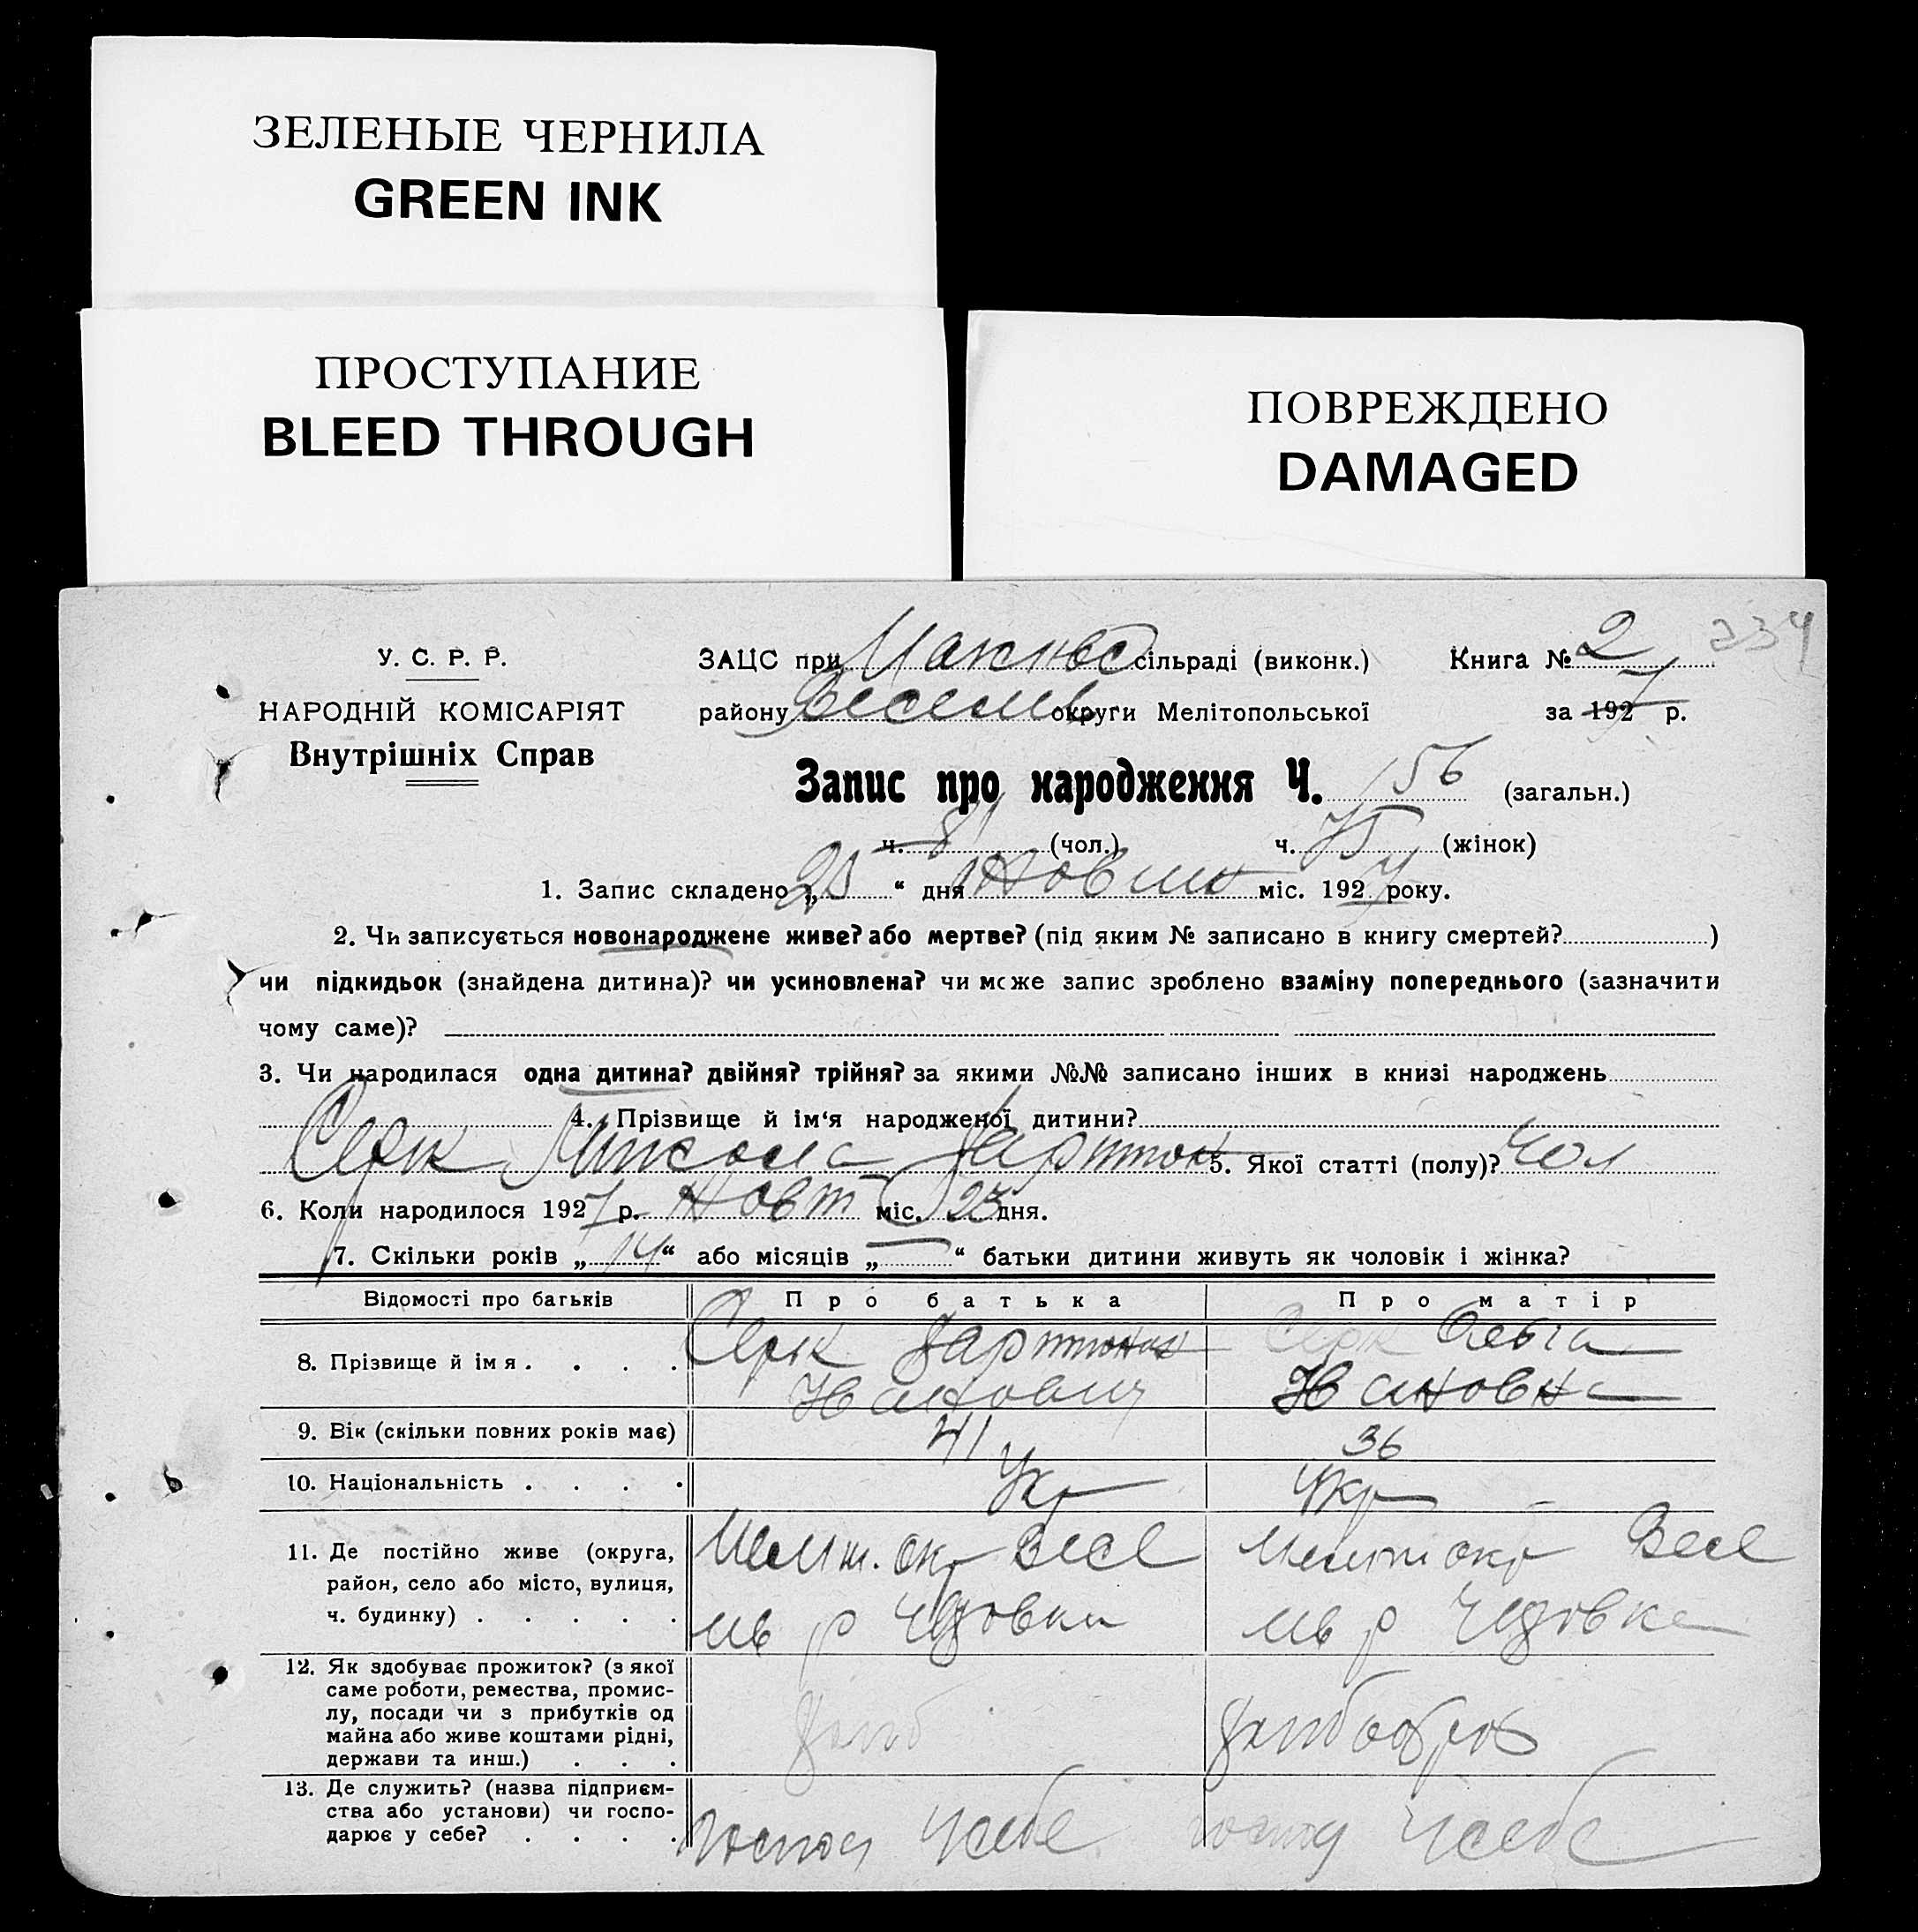 ЗЕЛЕНЫЕ ЧЕРНИЛА
GREEN INK
ПРОСТУПАНИЕ
BLEED THROUGH
ПОВРЕЖДЕНО
DAMAGED
234
У. С. Р. Р.
НАРОДНІЙ КОМІСАРІЯТ
Внутрішніх Справ
ЗАЦС при сільраді (виконк.) Книга № 2
району Веселів округи Мелітопольської за 1927 р.
Запис про народження Ч. 156 (загальн.)
ч. 81 (чол.) ч. 75 (жінок)
1. Запис складено „25“ дня міс. 1927 року.
2. Чи записується новонароджене живе? або мертве? (під яким № записано в книгу смертей? )
чи підкидьок (знайдена дитина)? чи усиновлена? чи може запис зроблено взаміну попереднього (зазначити
чому саме)?
3. Чи народилася одна дитина? двійня? трійня? за якими №№ записано інших в книзі народжень
4. Прізвище й ім‘я народженої дитини?
Серк 5. Якої статті (полу)? Чол
6. Коли народилося 1927 р. Жовт міс. 23 дня.
7. Скільки років „14“ або місяців „—“ батьки дитини живуть як чоловік і жінка?
Відомості про батьків Про батька Про матір
8. Прізвище й імя . . . . Серк Серк Ольга
Іванович Івановна
9. Вік (скільки повних років має) 41 36
10. Національність . . . . Укр Укр
11. Де постійно живе (округа, Меліт. окр Весе Меліт окр Весе
район, село або місто, вулиця,
ч. будинку) . . . . . лів р лів р
12. Як здобуває прожиток? (з якої
саме роботи, ремества, промис-
лу, посади чи з прибутків од
майна або живе коштами рідні,
держави та инш.) . . .
13. Де служить? (назва підприєм-
ства або установи) чи госпо-
дарює у себе? . . . . у себе у себе